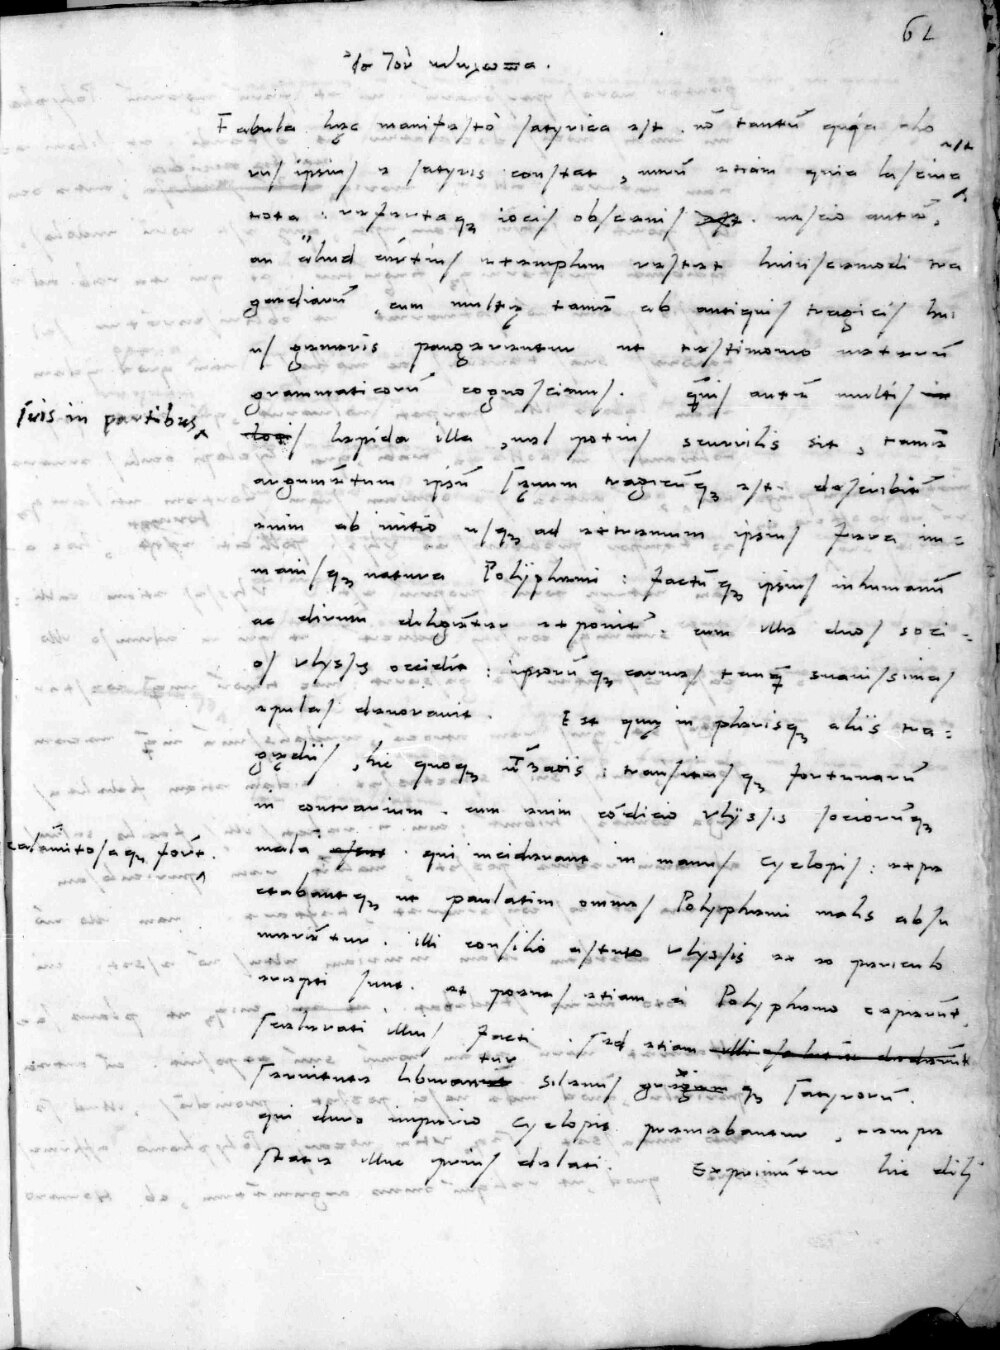 62
εἰς τὸν κύκλωπα.
Fabula hęc manifesto satyrica est. nō tantū quia cho
rus ipsius e satyris constat, uerū etiam quia lasciua est
tota: refertaq; iocis obscenis. nescio autē,
an aliud ań tius exemplum restet huiuscemodi tra
goediarū, cum multę tamē ab antiquis tragicis hui
us generis pangerentur ut testimonio ueterū
grammaticorū cognoscimus. quis autē multis in
suis in partibus
locis lepida illa, uel potius scurrilis sit, tamē
argumētum ipsū sęuum tragicūq; est. describitur
enim ab initio usq; ad extremum ipsius fera im=
manisq; natura Polyphemi: factūq; ipsius inhumanū
ac dirum diligēter exponit': cum ille duos soci=
os Vlyssis occidit: ipsorūq; carnes tanq̄ suauissimas
epulas deuorauit. Est quoq; in plerisq; aliis tra=
gędiis, hic quoq; : transitusq; fortunarū
in contrarium. cum enim cōdicio Vlyssis sociorūq;
calamitosaq; fort.
mala esset. qui inciderant in manus Cyclopis: expe
ctabantq; ut paulatim omnes Polyphemi malis absu
merētur. illi consilio astuto Vlyssis ex eo periculo
erepti sunt. et poenas etiam a Polyphemo ceperūt,
scelerati illius facti. Sed etiam illi salutem dederūt
tur
seruitute liberant Silenus gregem q; Satyrorū.
qui duro imperio Cyclopis premebantur, tempe
state illuc prius delati. Exprimūtur hic dili